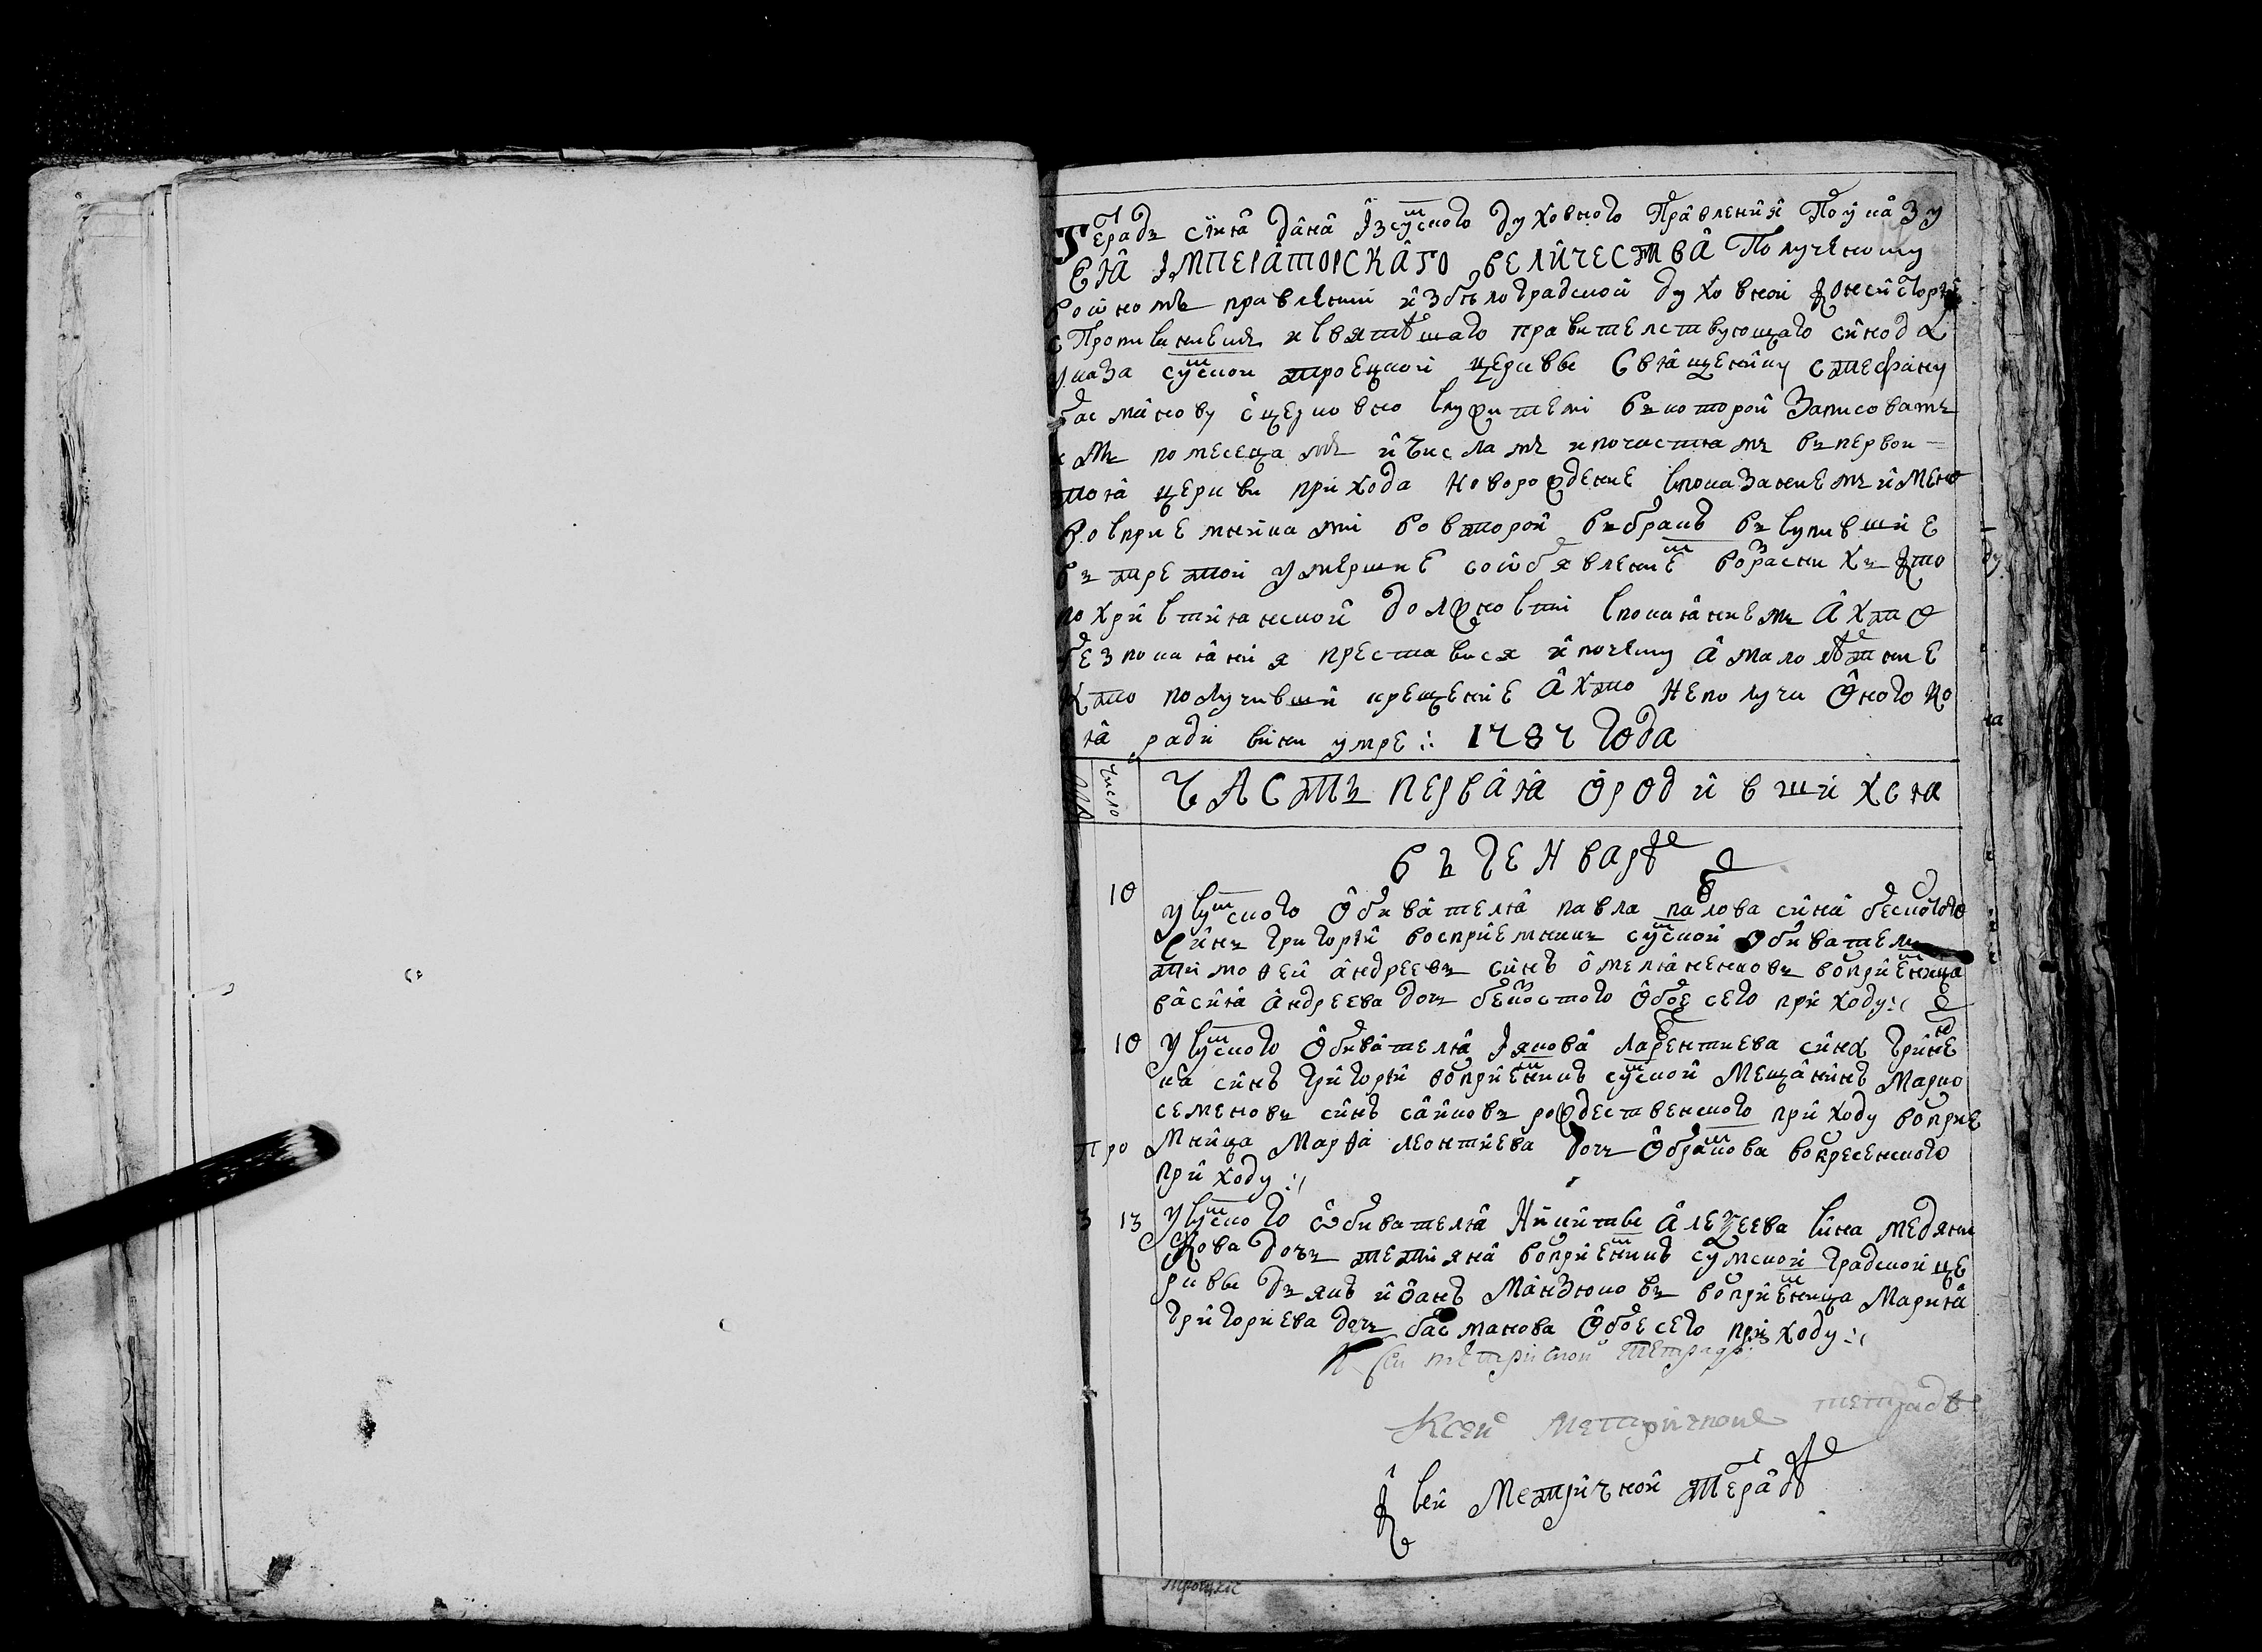 Тетрадь сия дана Із сумского духовного Правления По указу
ЕЯ ІМПЕРАТОРСКАГО ВЕЛИЧЕСТВА Полученому
во ономъ правлении изъ белоградской духовной консистории
с Прописаниемъ и святейшаго правителствующаго синода
указа сумской троецкой церквы Священнику стефану
басманову с церковно служители въ которой Записоватъ
имъ по месецамъ и числамъ и по частямъ въ первои
тоя церкви прихода новорожденние с показаниемъ имено
восприемниками во второй въ бракъ вступившие
въ третой умершие со объявлениемъ возрасни хъ кто
по християнской должности с покаяниемъ А хто
без покаяния преставися и почему а малолетние
кто получивши крещение А хто не получи Оного ко
я ради вини умре :: 1787 Года
Число
ЧАСТЬ ПЕРВАЯ О родившихся
Въ Генваре
10
У сумского Обивателя павла павлова сина
Синъ григорий восприемникъ сумской Обиватель
тимофей андреевъ синъ омеляненковъ восприемница
васия Андреева дочъ Обое сего приходу :
2 10 У сумского Обивателя Iякова лаврентиева сина Грине
ка синъ григорий восприемникъ сумской Мещанинъ Марко
семеновъ синъ саиковъ рождественского приходу восприе
мница Марфа леонтиева дочъ Обрамова воскресенского
приходу :
Про
3 13 У сумского обивателя Никиты Алексеева сина медяни
кова дочъ тетияна восприемникъ сумской градской це
рквы дьякъ иоанъ Манзюковъ восприемница Мария
григориева дочъ басманова Обое сего приходу :
К сей метрисной тетради
К сей метричной тетраде
К сей Метричной тетраде
Троицкой